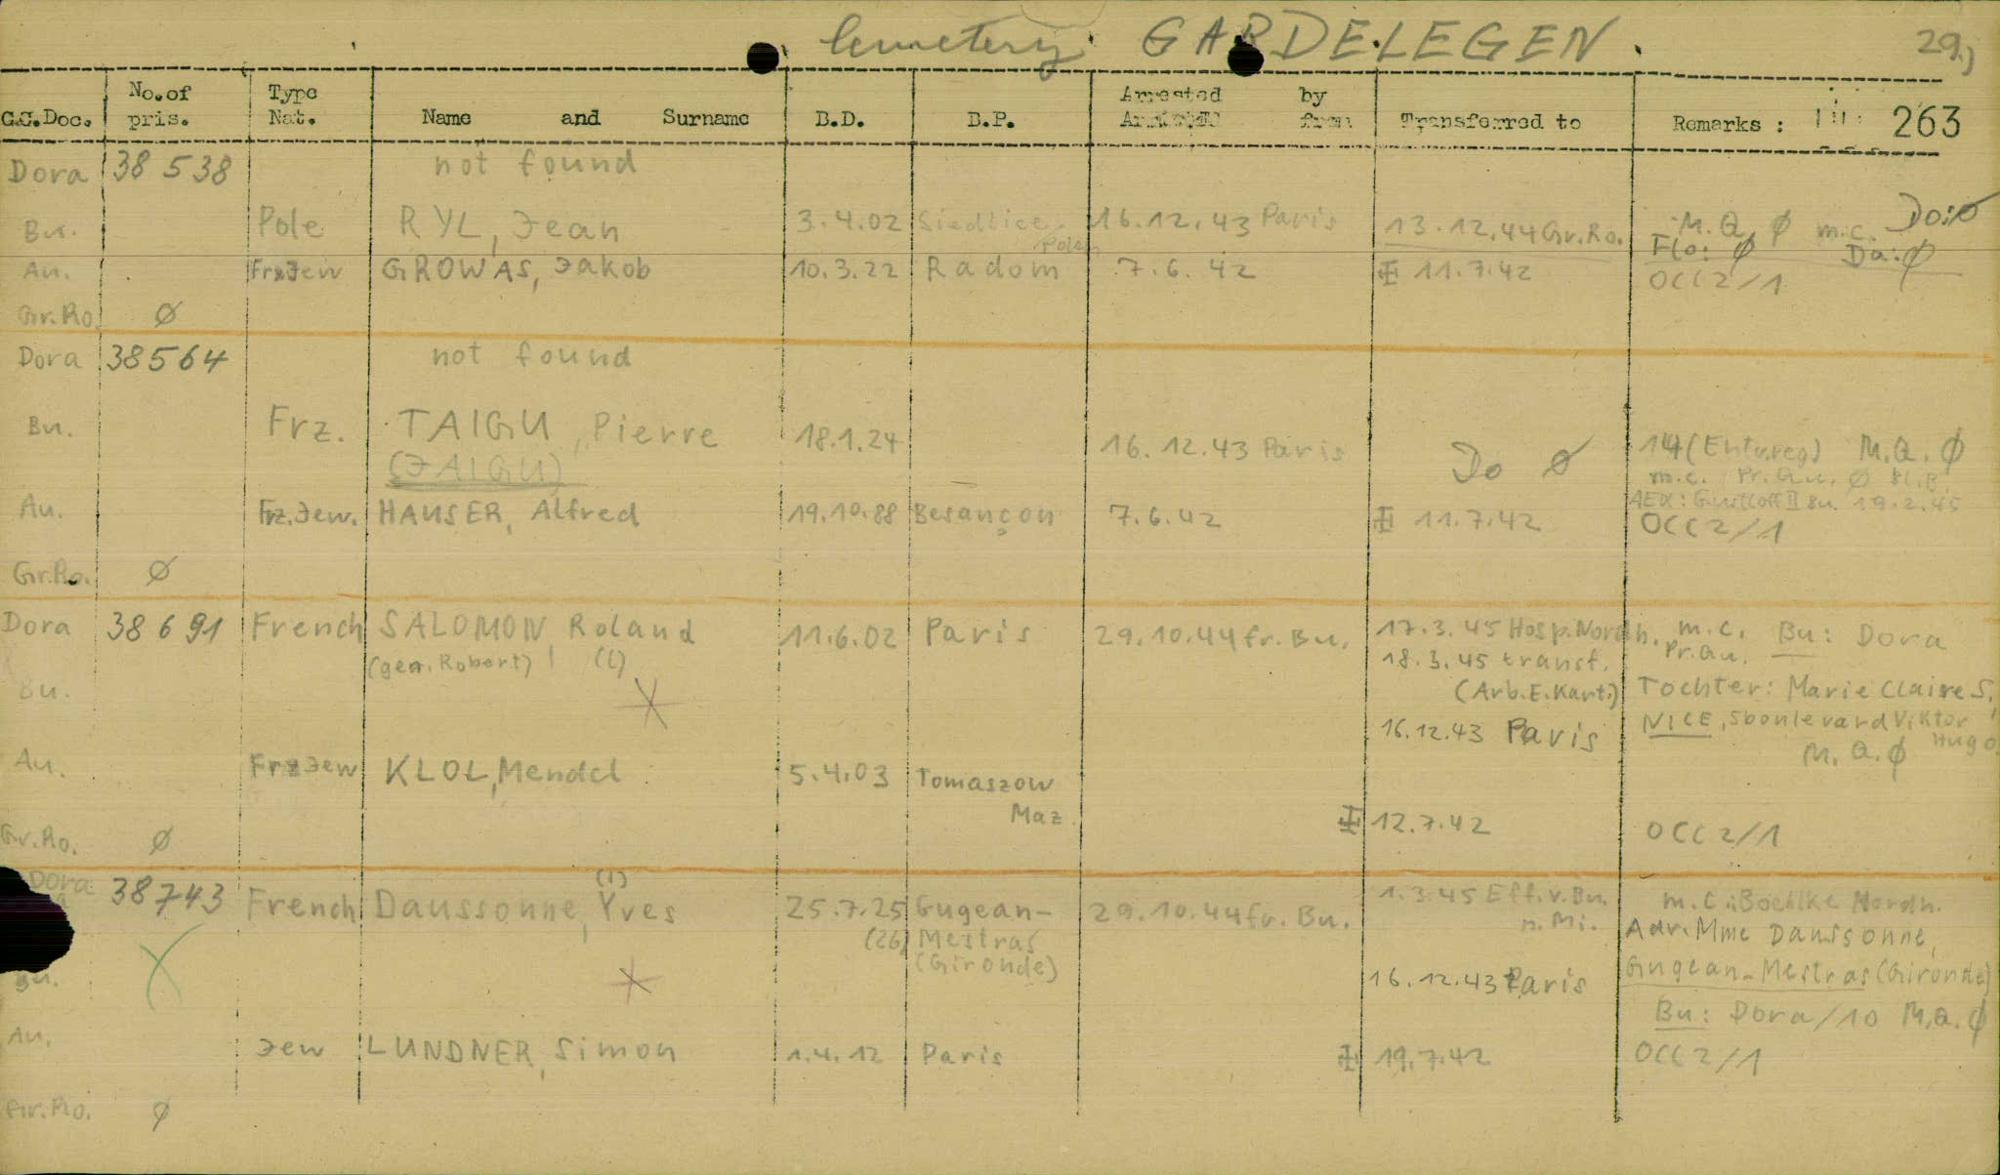 Cemetery GARDELEGEN. 29.)
C.C.Doc. No. of pris. Type Nat. Name and Surname B.D. B.P. Arrested by from Transferred to Remarks : 263
Dora 38 538 not found
Bu. Pole RYL, Jean 3.4.02 Siedlice Polen 16.12.43 Paris 13.12.44 Gr.Ro. M.Q. Ø m.c. Do: Ø
Flo: Ø Da: Ø
Au. Frz Jew GROWAS, Jakob 10.3.22 Radom 7.6.42 11.7.42 OCC 2/1
Gr.Ro. Ø
Dora 38564 not found
Bu. Frz. TAIGU, Pierre 18.1.24 16.12.43 Paris Do Ø 14 M.Q. Ø
(JAIGU) m.c. Pr.Qu. Ø
19.2.45
Au. Frz. Jew. HAUSER, Alfred 19.10.88 Besançon 7.6.42 11.7.42 OCC 2/1
Gr.Ro. Ø
Dora 38 691 French SALOMON Roland 11.6.02 Paris 29.10.44 fr. Bu. 17.3.45 Hosp. Nordh. m.c. Bu: Dora
(gen. Robert) ! (L) 18.3.45 transf. Pr.Qu.
Bu. (Arb.E.Kart.) Tochter: Marie Claire S.,
16.12.43 Paris NICE, 5 boulevard Viktor Hugo
M.Q. Ø
Au. Frz Jew KLOL, Mendel 5.4.03 Tomaszow
Maz. 12.7.42 OCC 2/1
Gr.Ro. Ø
Dora 38743 French Daussonne, Yves (1) 25.7.25 Gugean- 29.10.44 fr. Bu. 1.3.45 Eff. v. Bu. m.c.: Boehlke Nordh.
(26) Mestras n. Mi. Adr. Mme Daussonne,
(Gironde)
Bu. 16.12.43 Paris Gugean-Mestras (Gironde)
Bu: Dora/10 M.Q. Ø
Au. Jew LUNDNER, Simon 1.4.12 Paris 19.7.42 OCC 2/1
Gr.Ro. Ø